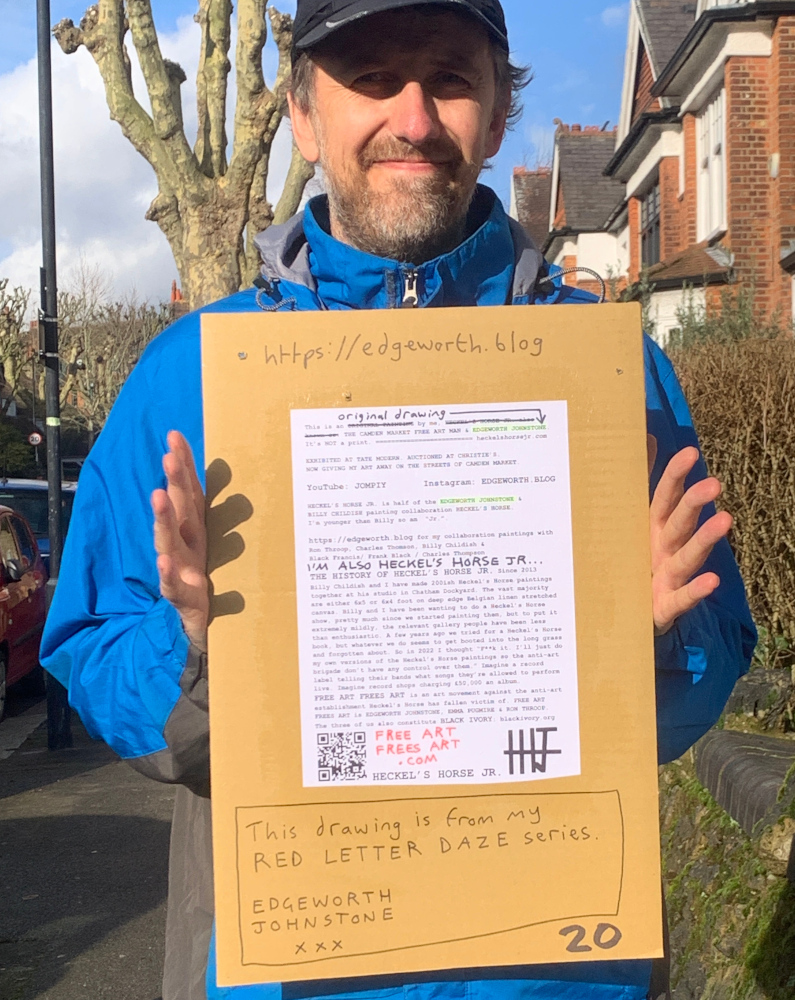 https://edgeworth.blog
original drawing
This is an ORIGINAL PAINTING by me, HECKEL'S HORSE JR. also
known as THE CAMDEN MARKET FREE ART MAN & EDGEWORTH JOHNSTONE.
It's NOT a print. heckelshorsejr.com
EXHIBITED AT TATE MODERN. AUCTIONED AT CHRISTIE'S.
NOW GIVING MY ART AWAY ON THE STREETS OF CAMDEN MARKET.
YouTube: JOMPIY Instagram: EDGEWORTH.BLOG
HECKEL'S HORSE JR. is half of the EDGEWORTH JOHNSTONE &
BILLY CHILDISH painting collaboration HECKEL'S HORSE.
I'm younger than Billy so am "Jr."
https://edgeworth.blog for my collaboration paintings with
Ron Throop, Charles Thomson, Billy Childish &
Black Francis/ Frank Black / Charles Thompson
I'M ALSO HECKEL'S HORSE JR...
THE HISTORY OF HECKEL'S HORSE JR. Since 2013
Billy Childish and I have made 200ish Heckel's Horse paintings
together at his studio in Chatham Dockyard. The vast majority
are either 6x5 or 6x4 foot on deep edge Belgian linen stretched
canvas. Billy and I have been wanting to do a Heckel's Horse
show, pretty much since we started painting them, but to put it
extremely mildly, the relevant gallery people have been less
than enthusiastic. A few years ago we tried for a Heckel's Horse
book, but whatever we do seems to get booted into the long grass
and forgotten about. So in 2022 I thought "F**k it. I'll just do
my own versions of the Heckel's Horse paintings so the anti-art
brigade don't have any control over them." Imagine a record
label telling their bands what songs they're allowed to perform
live. Imagine record shops charging £50,000 an album.
FREE ART FREES ART is an art movement against the anti-art
establishment Heckel's Horse has fallen victim of. FREE ART
FREES ART is EDGEWORTH JOHNSTONE, EMMA PUGMIRE & RON THROOP.
The three of us also constitute BLACK IVORY. blackivory.org
FREE ART
FREES ART
.COM
HECKEL'S HORSE JR.
This drawing is from my
RED LETTER DAZE series.
EDGEWORTH
JOHNSTONE
x x x
20
20